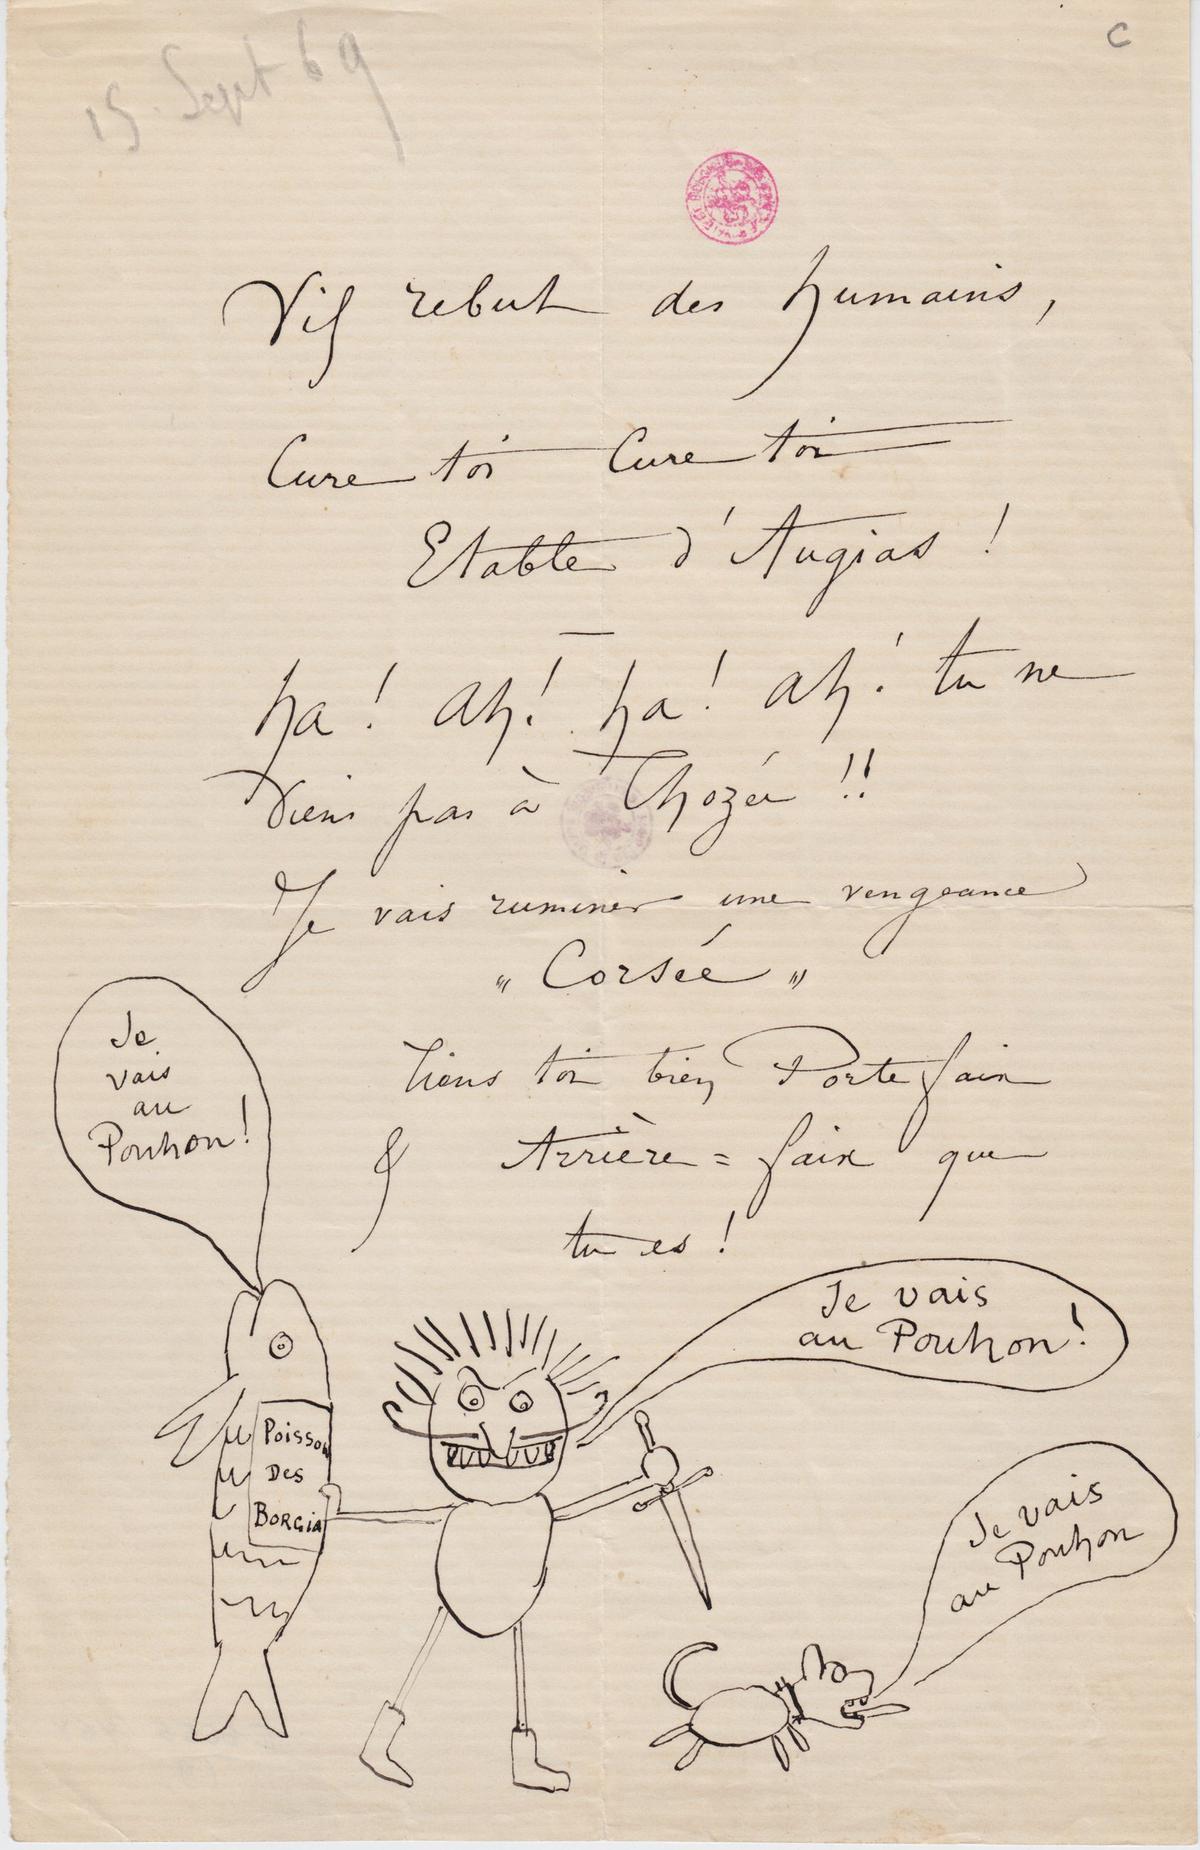 15 Sept 69
C
Vil rebut des humains,
Cure toi Cure toi
Etable d'Augias !
ha ! ah ! ha ! ah ! tu ne
viens pas à Thozée !!
Je vais ruminer une vengeance
" Corsée "
Tiens toi bien Porte faix
& Arrière=faix que
tu es !
Je
vais
au
Pouhon !
Je vais
au Pouhon !
Poisson
Des
Borgia
Je vais
au Pouhon